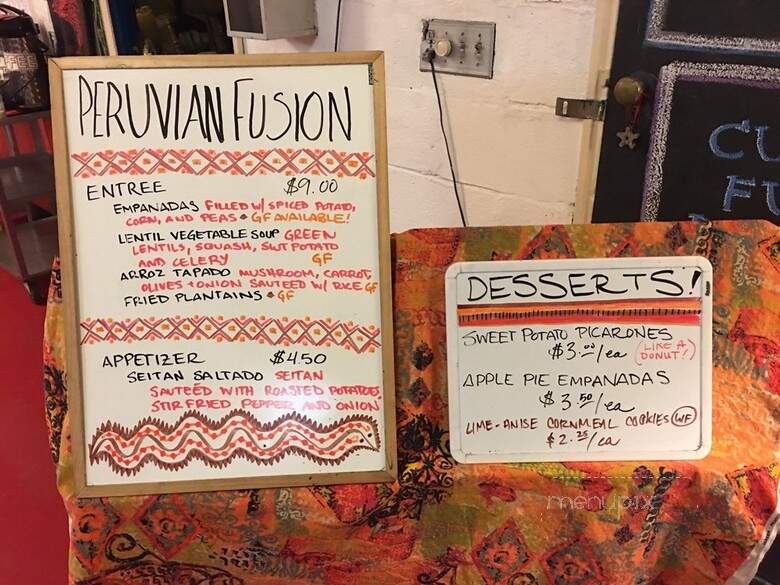 PERUVIAN FUSION
ENTREE $9.00
EMPANADAS FILLED W/ SPICED POTATO,
CORN, AND PEAS • GF AVAILABLE!
LENTIL VEGETABLE SOUP GREEN
LENTILS, SQUASH, SWT POTATO
AND CELERY GF
ARROZ TAPADO MUSHROOM, CARROT,
OLIVES + ONION SAUTEED W/ RICE GF
FRIED PLANTAINS • GF
APPETIZER $4.50
SEITAN SALTADO SEITAN
SAUTEED WITH ROASTED POTATOES,
STIR FRIED PEPPER AND ONION
DESSERTS!
SWEET POTATO PICARONES
$3.00/ea (LIKE A
DONUT!)
APPLE PIE EMPANADAS
$3.50/ea
LIME-ANISE CORNMEAL COOKIES WF
$2.25/ea
CU
FU
menupix